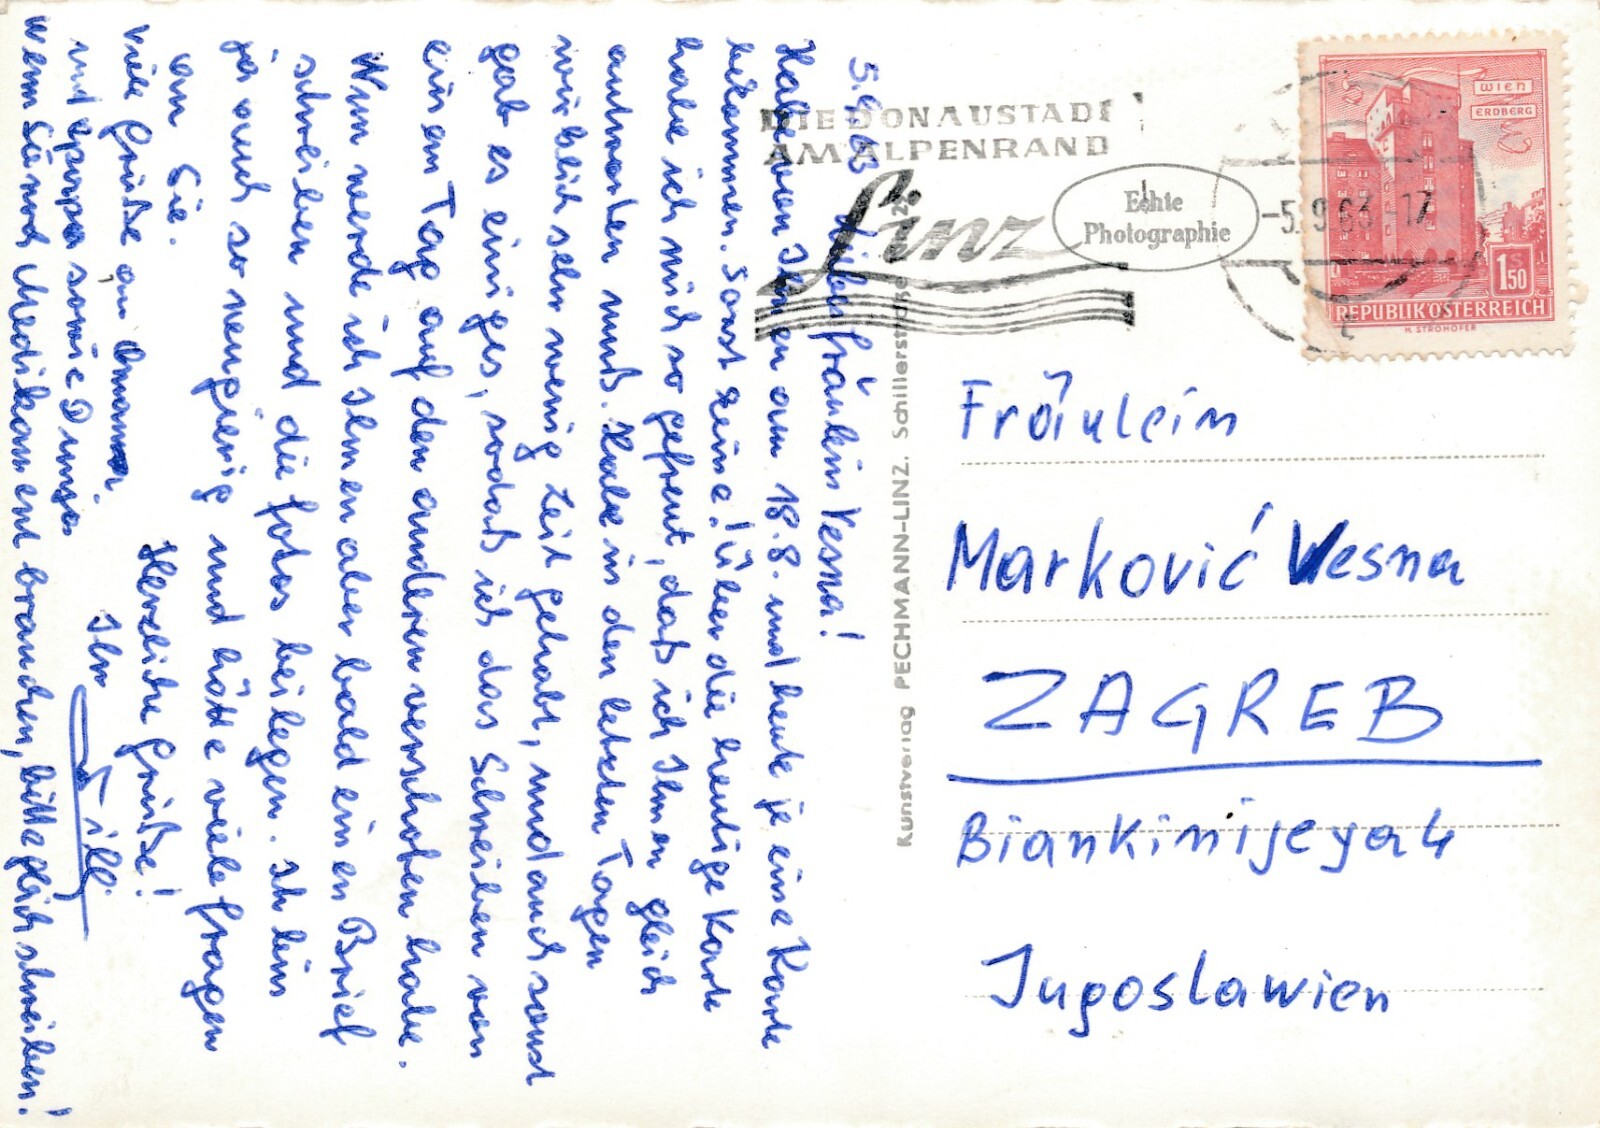 5.9.63 Liebes Fräulein Vesna!
Habe von Ihnen am 18.8. und heute je eine Karte
bekommen. Sonst keine! Über die heutige Karte
habe ich mich so gefreut, daß ich Ihnen gleich
antworten muß. Habe in den letzten Tagen
wirklich sehr wenig Zeit gehabt, und auch sonst
gab es einiges, sodaß ich das Schreiben von
einem Tag auf den anderen verschoben habe.
Nun werde ich Ihnen aber bald einen Brief
schreiben und die Fotos beilegen. Ich bin
ja auch so neugierig und hätte viele Fragen
an Sie.
Herzliche Grüße!
Viele Grüße an Omama
und sowie
Ihr
Willi
wenn Sie noch Medikament brauchen, bitte gleich schreiben!
DIE DONAUSTADT
AM ALPENRAND
Linz
Echte
Photographie
-5.9.63-17
WIEN
ERDBERG
1S50
REPUBLIK ÖSTERREICH
H. STROHOFER
Kunstverlag PECHMANN-LINZ. Schillerstraße
Fräulein
Marković Vesna
ZAGREB
Biankinijeva 4
Jugoslawien